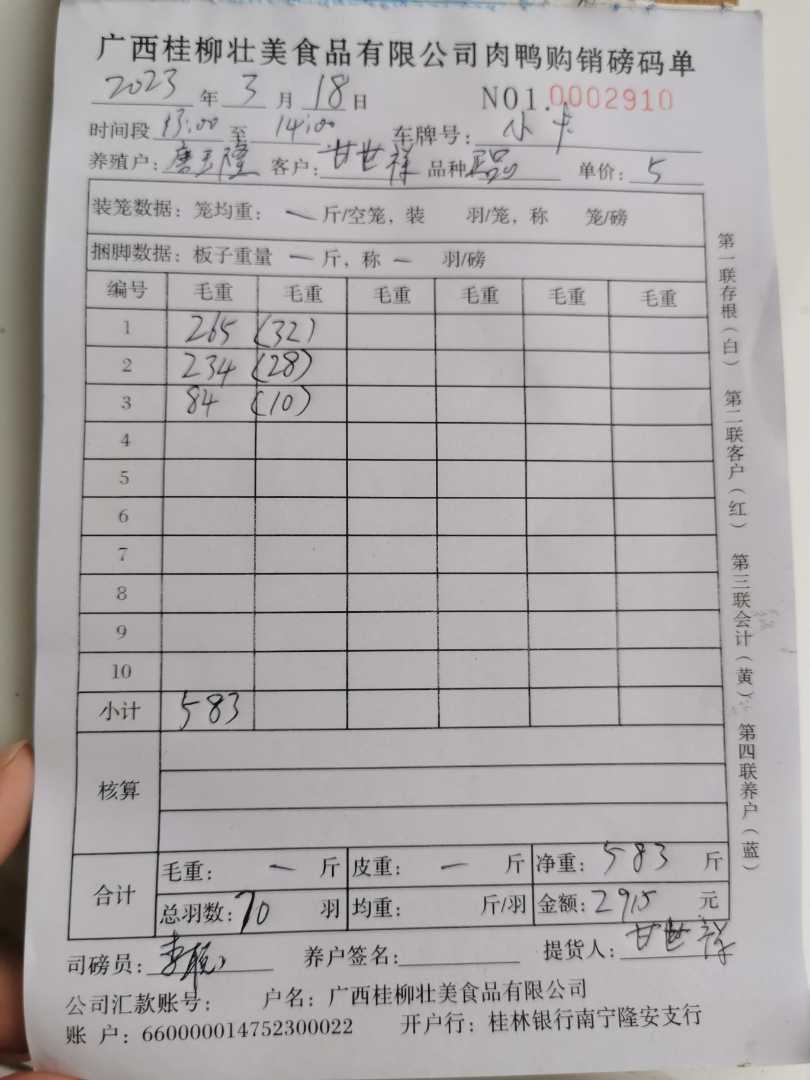 广西桂柳壮美食品有限公司肉鸭购销磅码单
2023 年 3 月 18 日 NO1.0002910
时间段 13:00 至 14:00 车牌号: 小卡
养殖户: 唐玉隆 客户: 甘世祥 品种 单价: 5
装笼数据: 笼均重: 一 斤/空笼, 装 羽/笼, 称 笼/磅
捆脚数据: 板子重量 一 斤, 称 一 羽/磅
编号 毛重 毛重 毛重 毛重 毛重 毛重
1 265 (32)
2 234 (28)
3 84 (10)
4
5
6
7
8
9
10
小计 583
核算
合计
毛重: 一 斤 皮重: 一 斤 净重: 583 斤
总羽数: 70 羽 均重: 斤/羽 金额: 2915 元
司磅员: 养户签名: 提货人: 甘世祥
公司汇款账号: 户名: 广西桂柳壮美食品有限公司
账 户: 660000014752300022 开户行: 桂林银行南宁隆安支行
第一联存根(白) 第二联客户(红) 第三联会计(黄) 第四联养户(蓝)